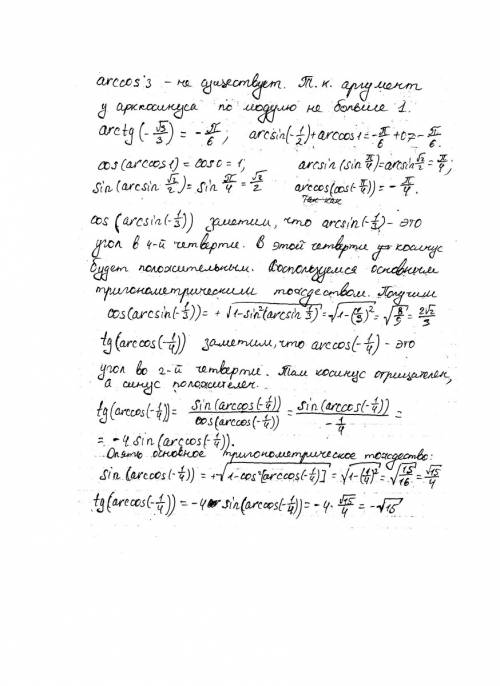 arccos 3 – не существует. Т.к. аргумент
у арккосинуса по модулю не больше 1.
arctg(-√3/3) = -π/6; arcsin(-1/2)+arccos1=-π/6+0=-π/6.
cos(arccos1)=cos0=1; arcsin(sin π/4)=arcsin √2/2=π/4;
sin(arcsin √2/2)=sin π/4=√2/2 arccos(cos(-π/4))=-π/4.
так как
cos(arcsin(-1/3)) заметим, что arcsin(-1/3)- это
угол в 4-й четверти. В этой четверти косинус
будет положительным. Воспользуемся основным
тригонометрическим тождеством. Получим
cos(arcsin(-1/3))=+√1-sin²(arcsin 1/3)=√1-(1/3)²=√8/9=2√2/3
tg(arccos(-1/4)) заметим, что arccos(-1/4)- это
угол во 2-й четверти. Там косинус отрицателен,
а синус положителен.
tg(arccos(-1/4))= sin(arccos(-1/4))/cos(arccos(-1/4)) = sin(arccos(-1/4))/-1/4 =
= -4 sin(arccos(-1/4)).
Опять основное тригонометрическое тождество:
sin(arccos(-1/4))=+√1-cos²[arccos(-1/4)]=√1-(1/4)²=√15/16=√15/4
tg(arccos(-1/4))=-4 sin(arccos(-1/4))=-4·√15/4=-√15